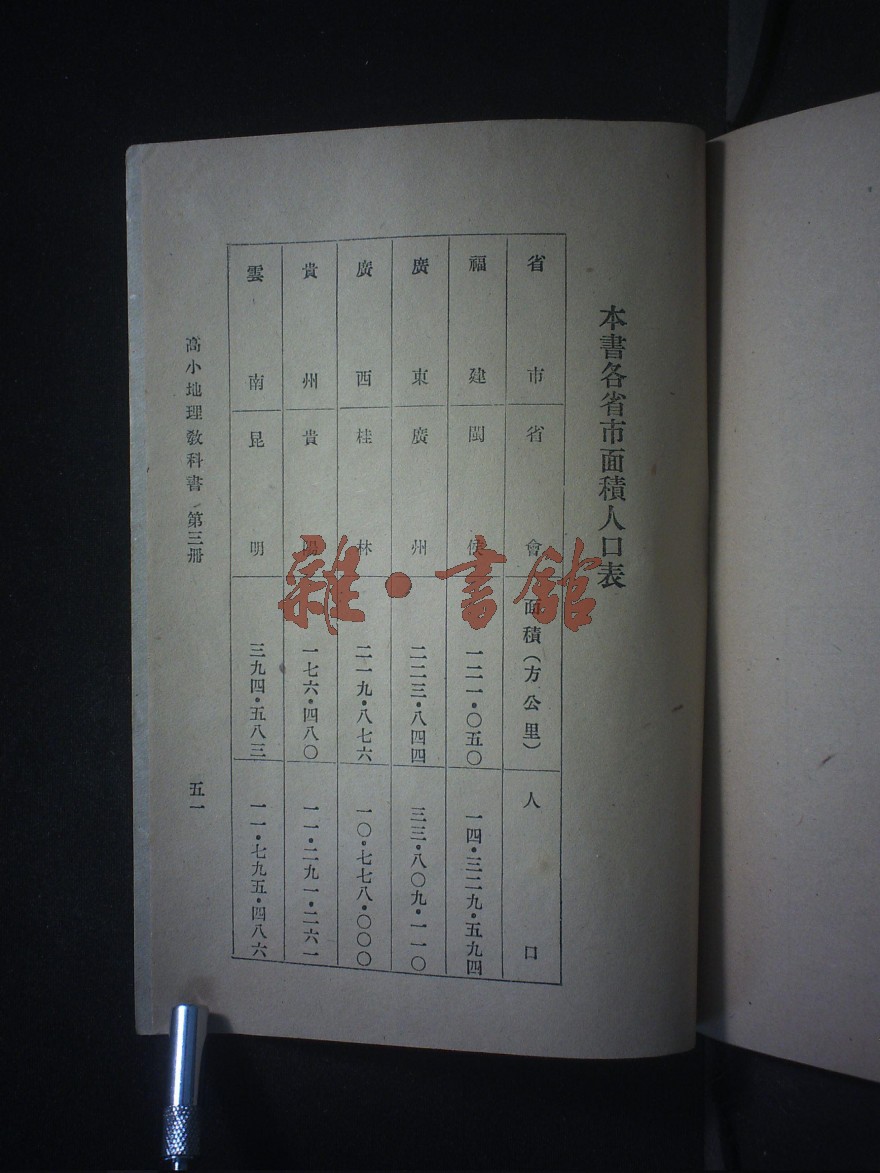 本書各省市面積人口表
省市 省會 面積(方公里) 人口
福建 閩侯 一二一•〇五〇 一四•三二九•五九四
廣東 廣州 二二三•八四四 三三•八〇九•一一〇
廣西 桂林 二一九•八七六 一〇•七七八•〇〇〇
貴州 貴陽 一七六•四八〇 一一•二九一•二六一
雲南 昆明 三九四•五八三 一一•七九五•四八六
高小地理敎科書 第三冊
五一
雜•書館